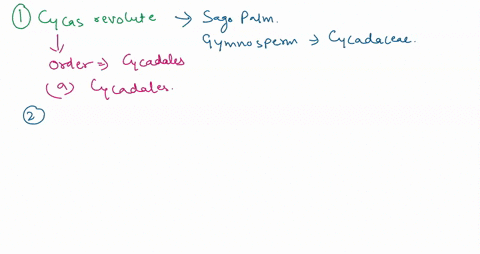 ① Cycas revolute → Sago Palm.
Gymnosperm → Cycadaceae.
↓
Order ⇒ Cycadales
(a) Cycadales.
②